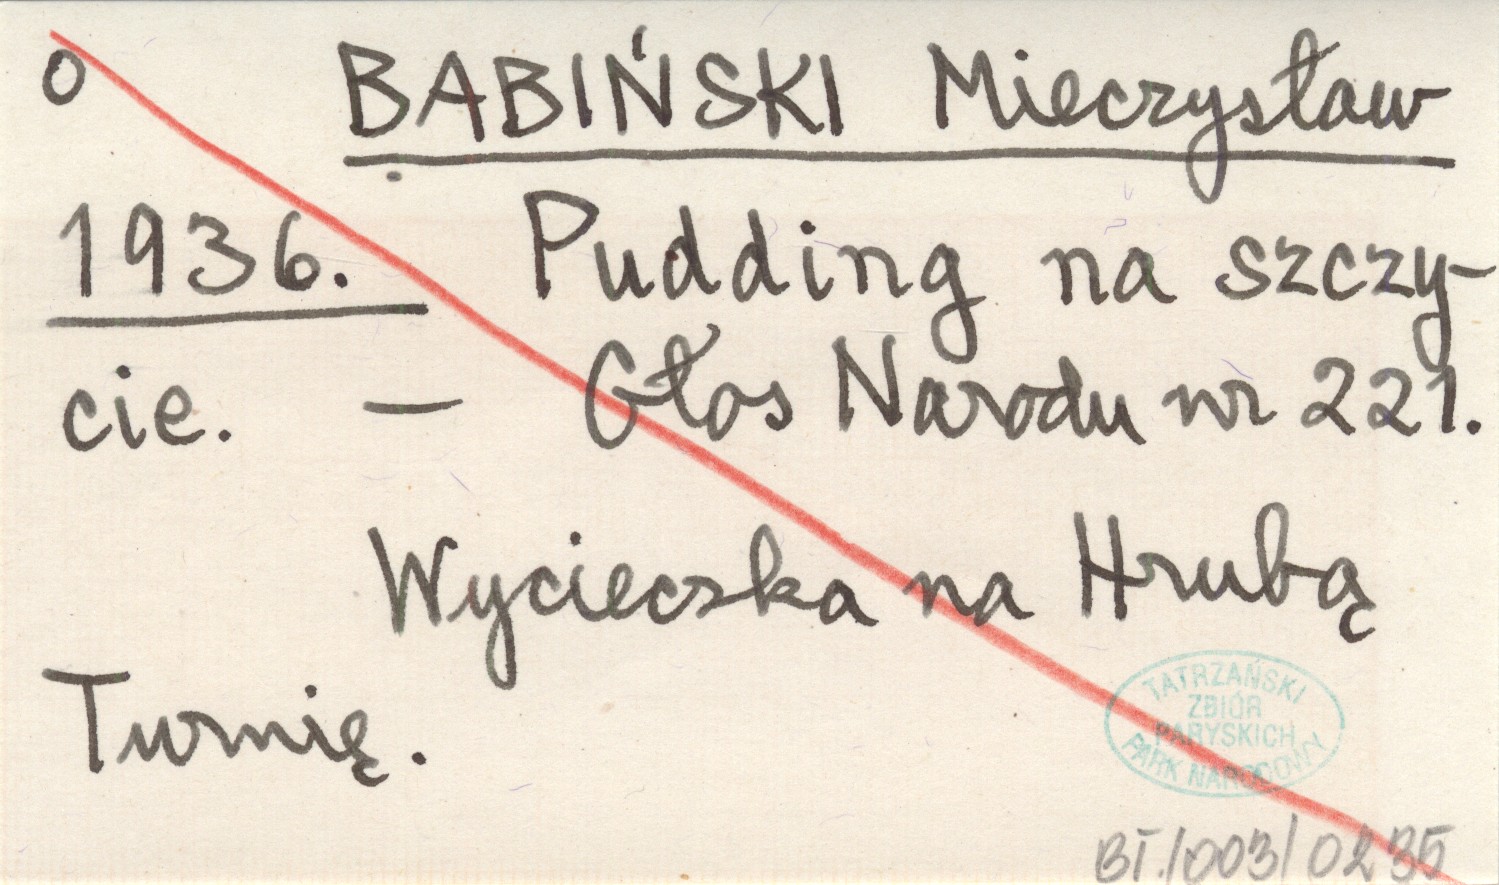 o BABIŃSKI Mieczysław
1936. Pudding na szczy-
cie. — Głos Narodu nr 221.
Wycieczka na Hrubą
Turnię.
TATRZAŃSKI
ZBIÓR
PARYSKICH
PARK NARODOWY
BT./003/0235